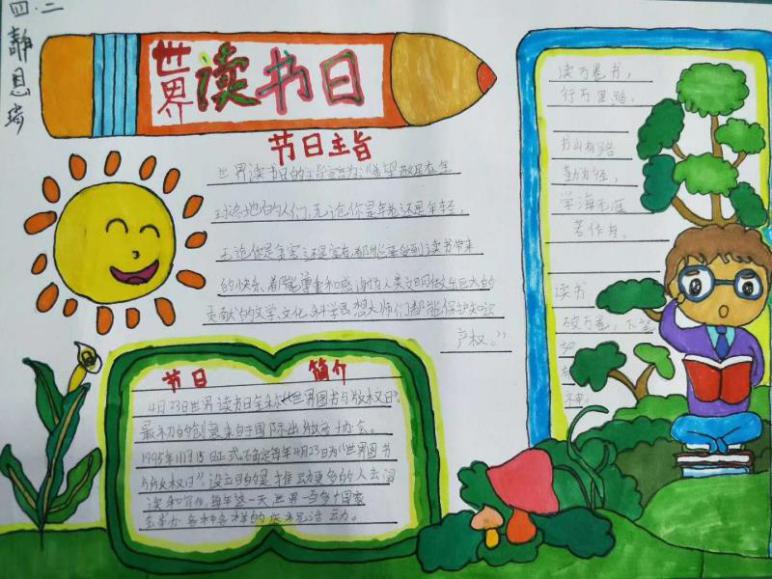 四.二
静恩瑞
世界读书日
节日主旨
世界读书日的主旨宣言为:“希望散居在全
球各地的人们,无论你是年老还是年轻,
无论你是贫穷还是富有,都能享受到读书带来
的快乐,都能尊重和感谢为人类文明做出巨大的
贡献的文学、文化、科学思想大师们都能保护知识
产权。”
节日 简介
4月23世界读书日全称“世界图书与版权日”,
最初的创意来自于国际出版商协会。
1995年11月15日正式确定每年4月23日为“世界图书
与版权日”,设立目的是推动更多的人去阅
读和写作,每年这一天,世界
举办各种各样的
读万卷书,
行万里路。
书山有路
勤为径,
学海无涯
苦作舟。
读书
破万卷,下笔
如
有
神。